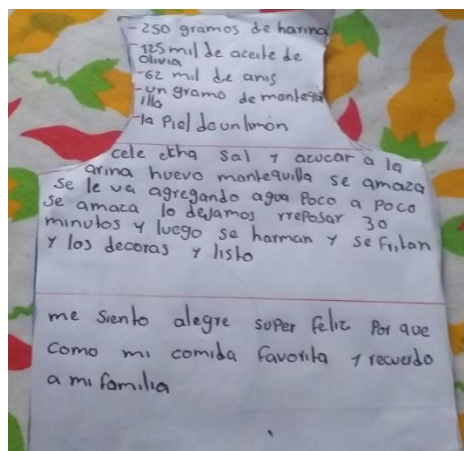 -250 gramos de harina
-125 mil de aceite de
olivia
-62 mil de anis
-un gramo de mantequ
illa
-la Piel de un limón
cele echa sal y azucar a la
arina huevo mantequilla se amaza
se le va agregando agua Poco a Poco
se amaza lo dejamos rreposar 30
minutos y luego se harman y se Fritan
y los decoras y listo
me siento alegre super feliz Por que
como mi comida favorita y recuerdo
a mi familia